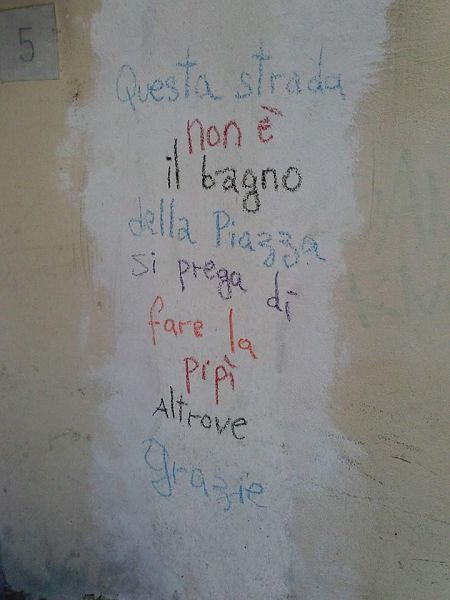 5
Questa strada
non è
il bagno
della Piazza
si prega di
fare la
pipì
Altrove
grazie